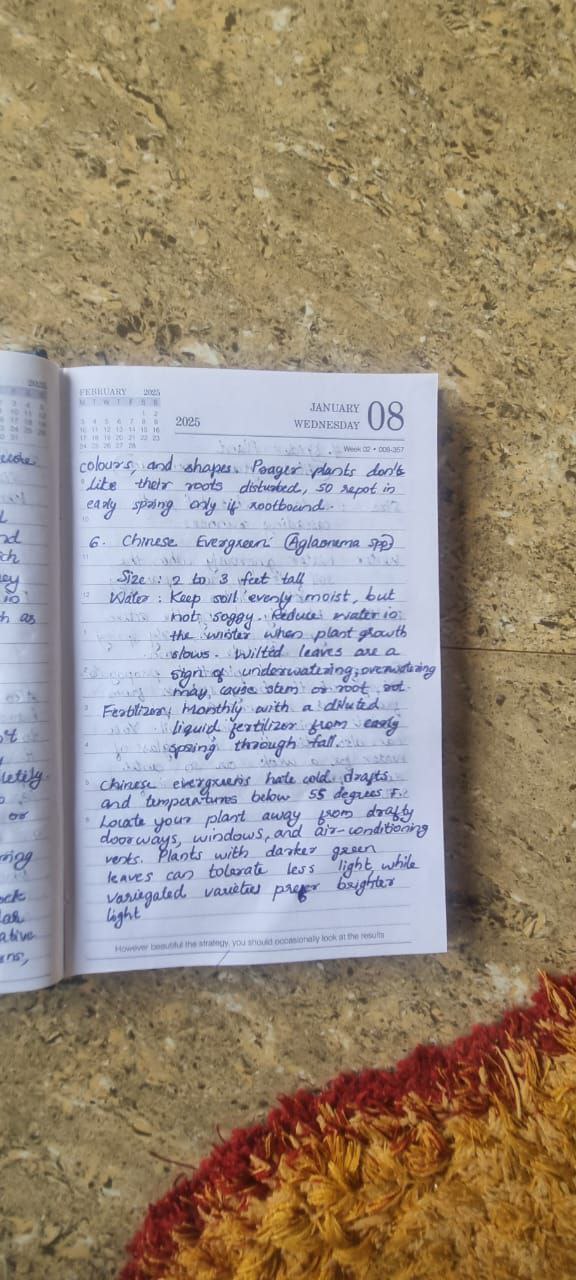 FEBRUARY 2025
M T W T F S S
1 2
3 4 5 6 7 8 9
10 11 12 13 14 15 16
17 18 19 20 21 22 23
24 25 26 27 28
2025
JANUARY
WEDNESDAY
08
Week 02 • 008-357
colours, and shapes. Poager plants don't
like their roots disturbed, so repot in
early spring only if rootbound.
6. Chinese Evergreen (Aglaonema spp)
Size : 2 to 3 feet tall
Water : Keep soil evenly moist, but
not soggy. Reduce water in
the winter when plant growth
slows. Wilted leaves are a
sign of underwatering; overwatering
may cause stem or root rot.
Fertilizer: Monthly with a diluted
liquid fertilizer from early
spring through fall.
Chinese evergreens hate cold drafts
and temperatures below 55 degrees F.
Locate your plant away from drafty
doorways, windows, and air-conditioning
vents. Plants with darker green
leaves can tolerate less light while
variegated varieties prefer brighter
light
However beautiful the strategy, you should occasionally look at the results